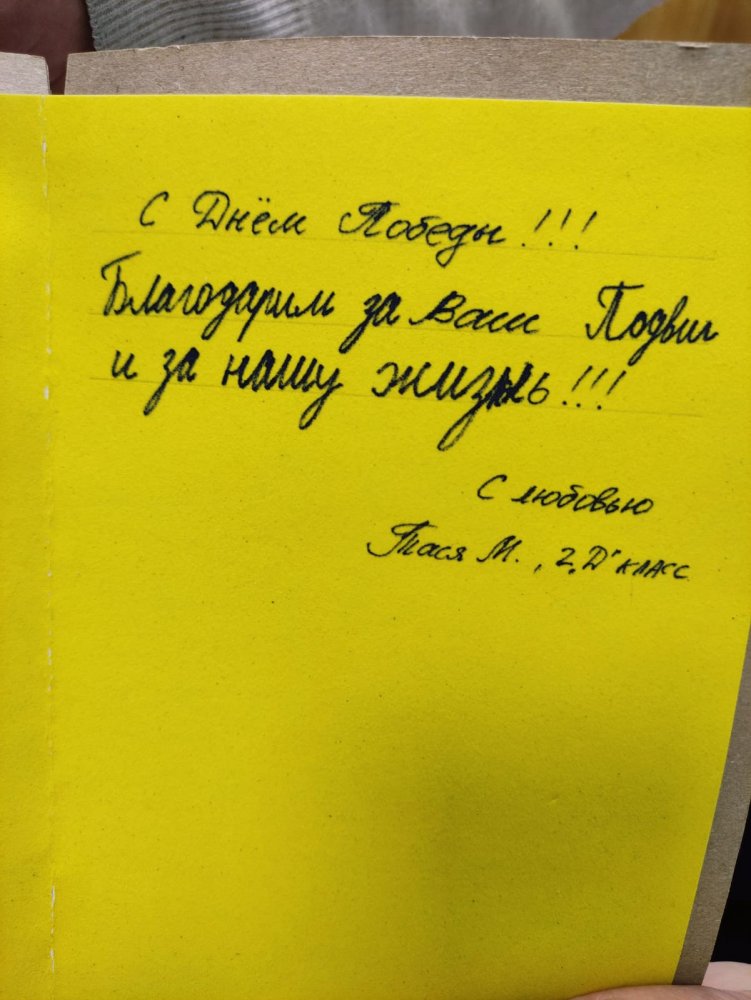 С Днём Победы!!!
Благодарим за Ваш Подвиг
и за нашу жизнь!!!
С любовью
Тася М., 2 "Д" класс